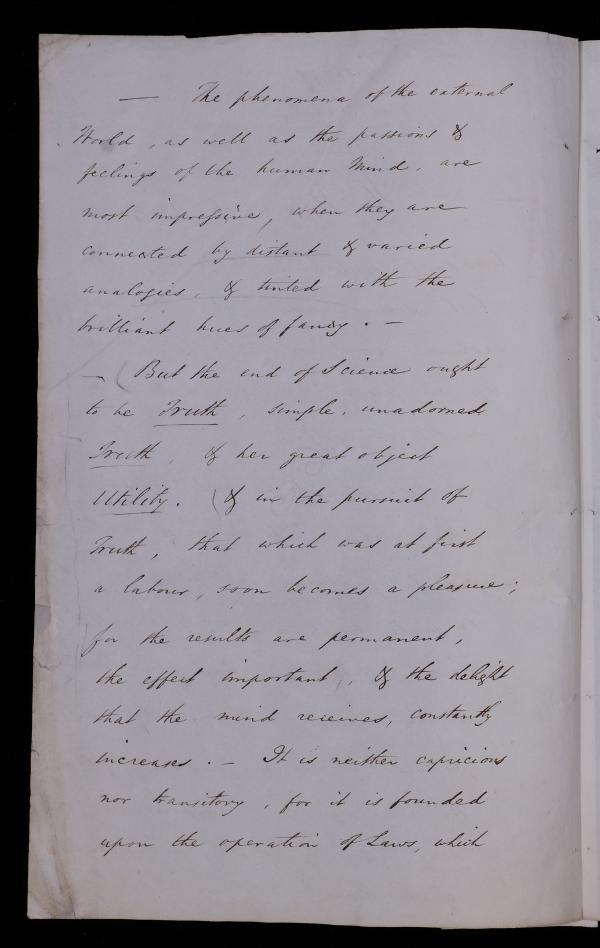 — The phenomena of the external
World, as well as the passions &
feelings of the human Mind, are
most impressive, when they are
connected by distant & varied
analogies, & tinted with the
brilliant hues of fancy. —
— (But the end of Science ought
to be Truth, simple, unadorned
Truth, & her great object
Utility. (& in the pursuit of
Truth, that which was at first
a labour, soon becomes a pleasure;
for the results are permanent,
the effect important, & the delight
that the mind receives, constantly
increases. — It is neither capricious
nor transitory, for it is founded
upon the operation of Laws, which